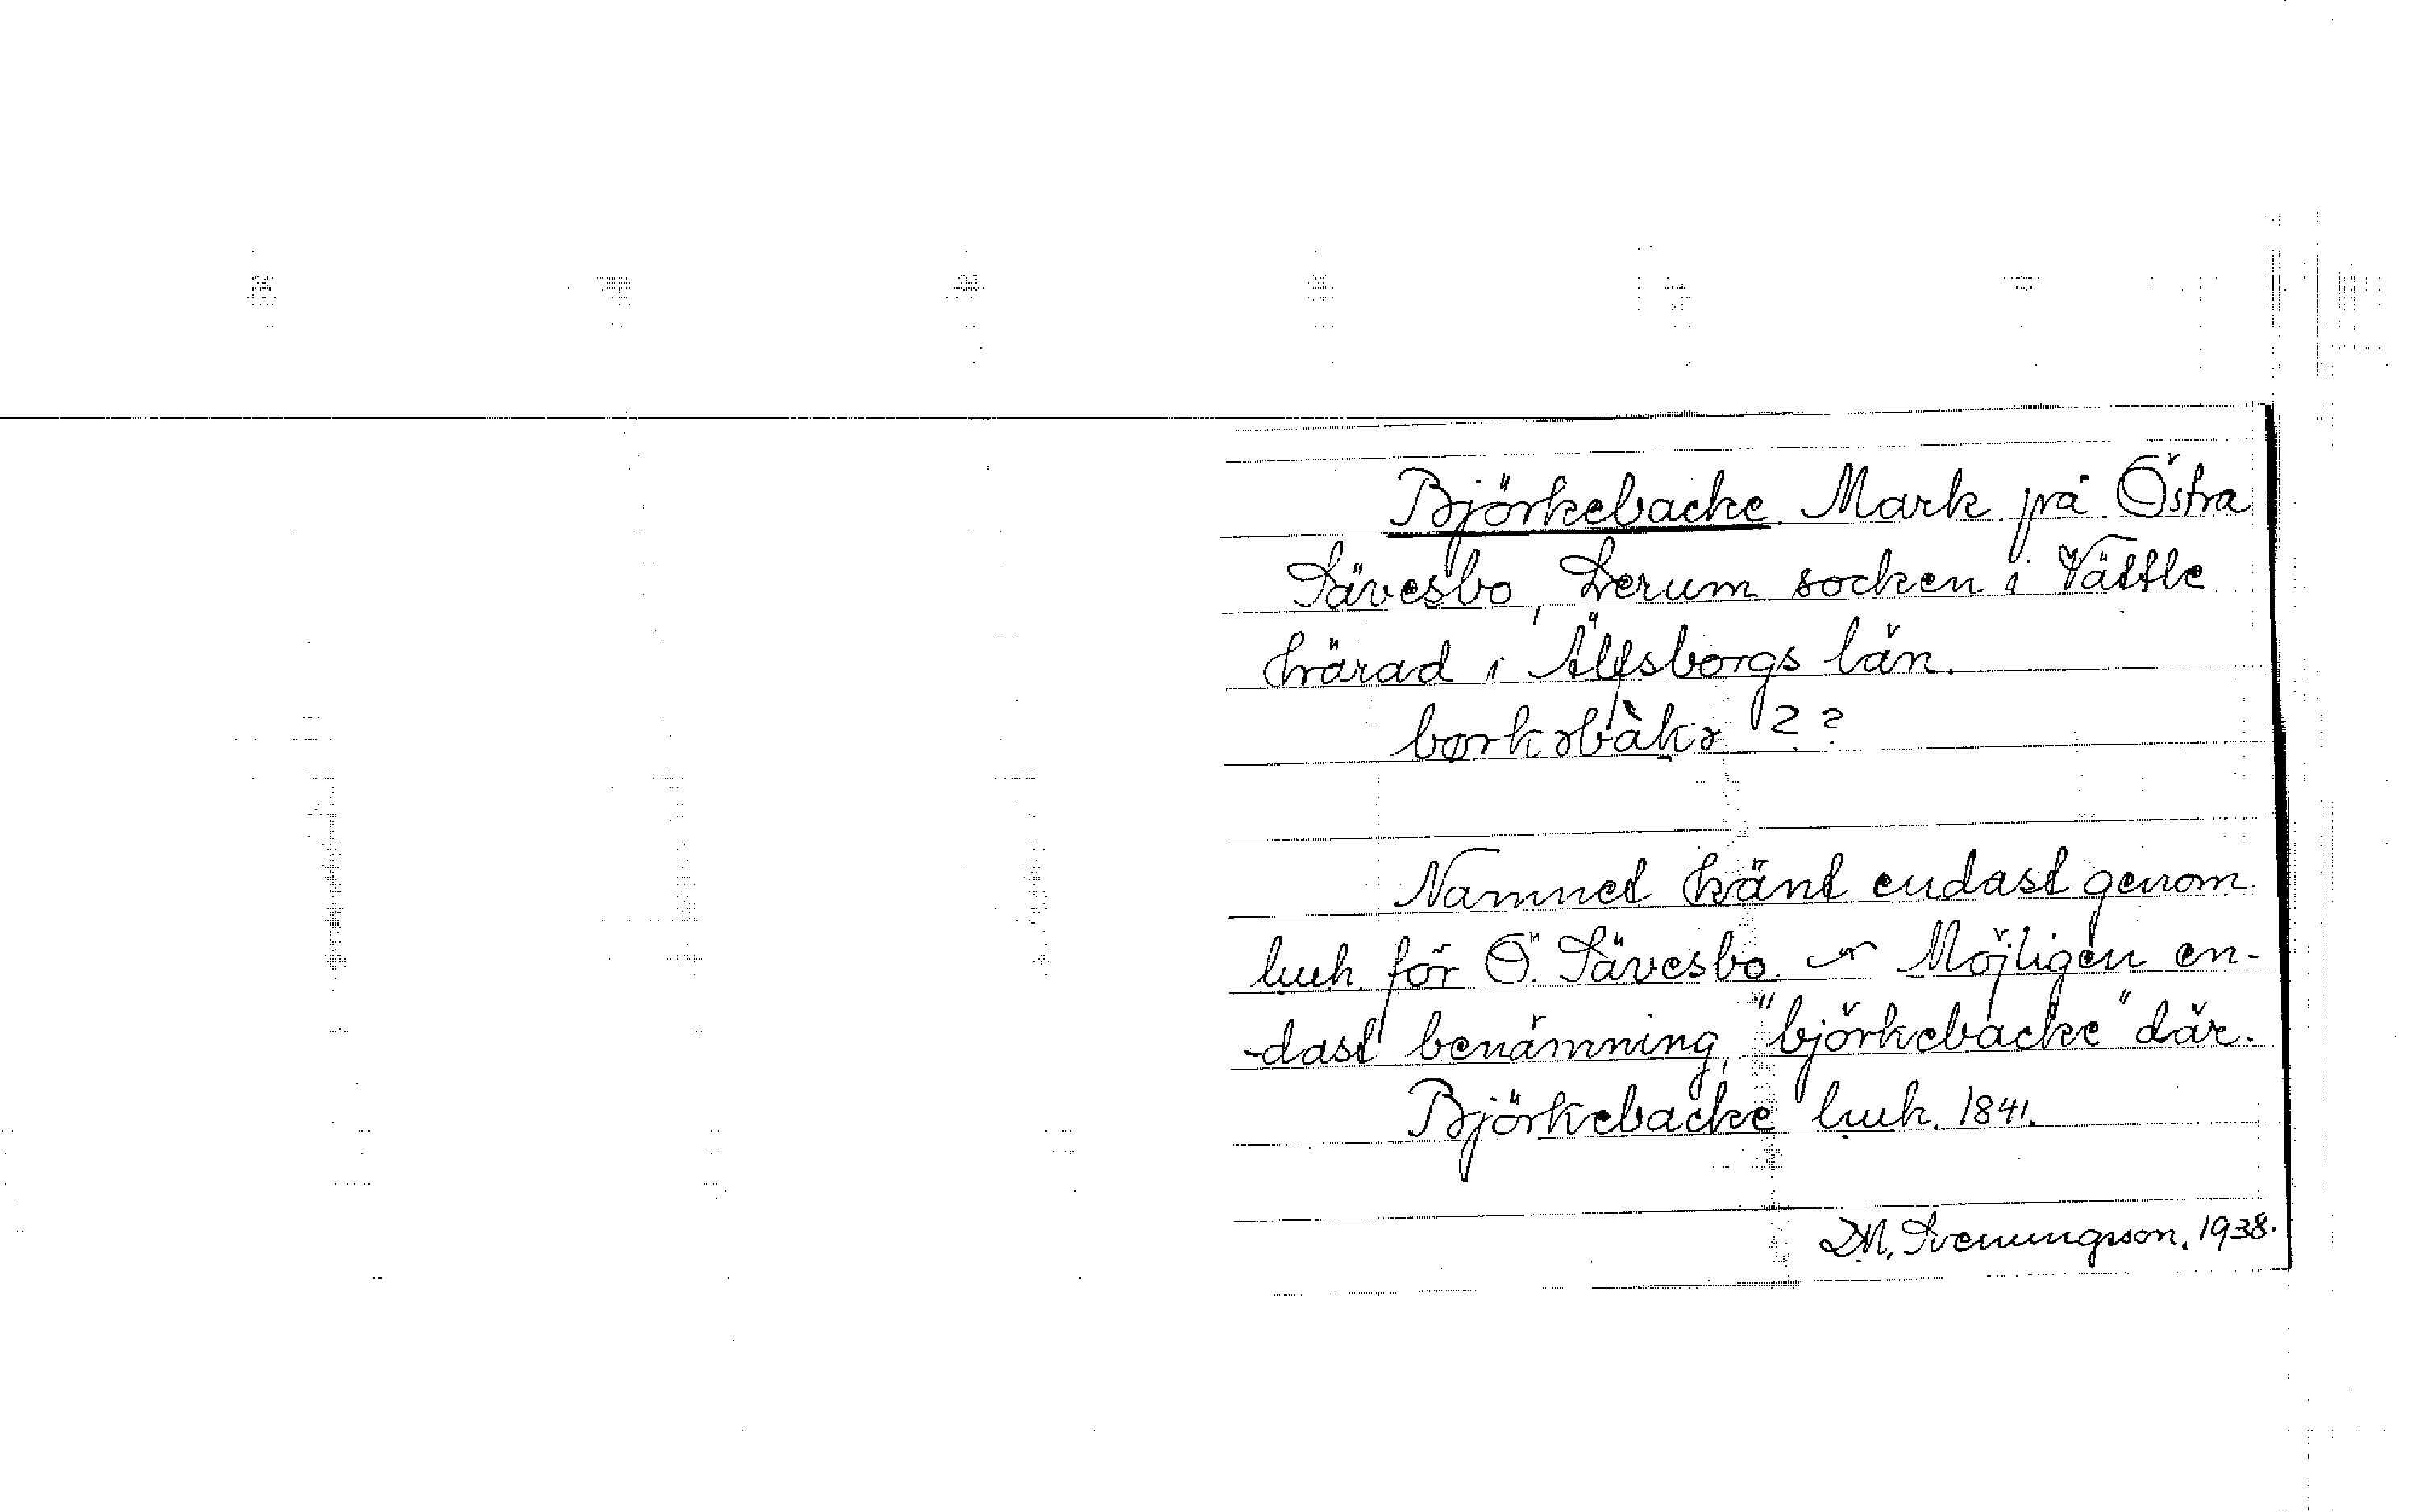 Björkebacke. Mark på Östra
Sävesbo, Lerum socken i Vättle
härad i Älfsborgs län.
börkəbàkə ??
Namnet känt endast genom
luh. för Ö. Sävesbo. Möjligen en-
-dast benämning, "björkebacke" där.
Björkebacke luh. 1841.
D.M. Svenungsson. 1938.